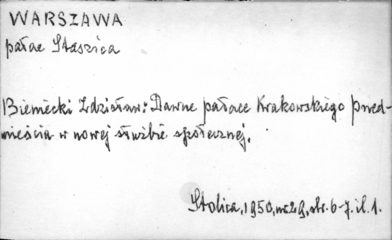 WARSZAWA
pałac Staszica
Biernecki Zdzisław: Dawne pałace Krakowskiego Przed-
mieścia w nowej służbie społecznej.
Stolica, 1950, nr 29, str. 6-7. il. 1.